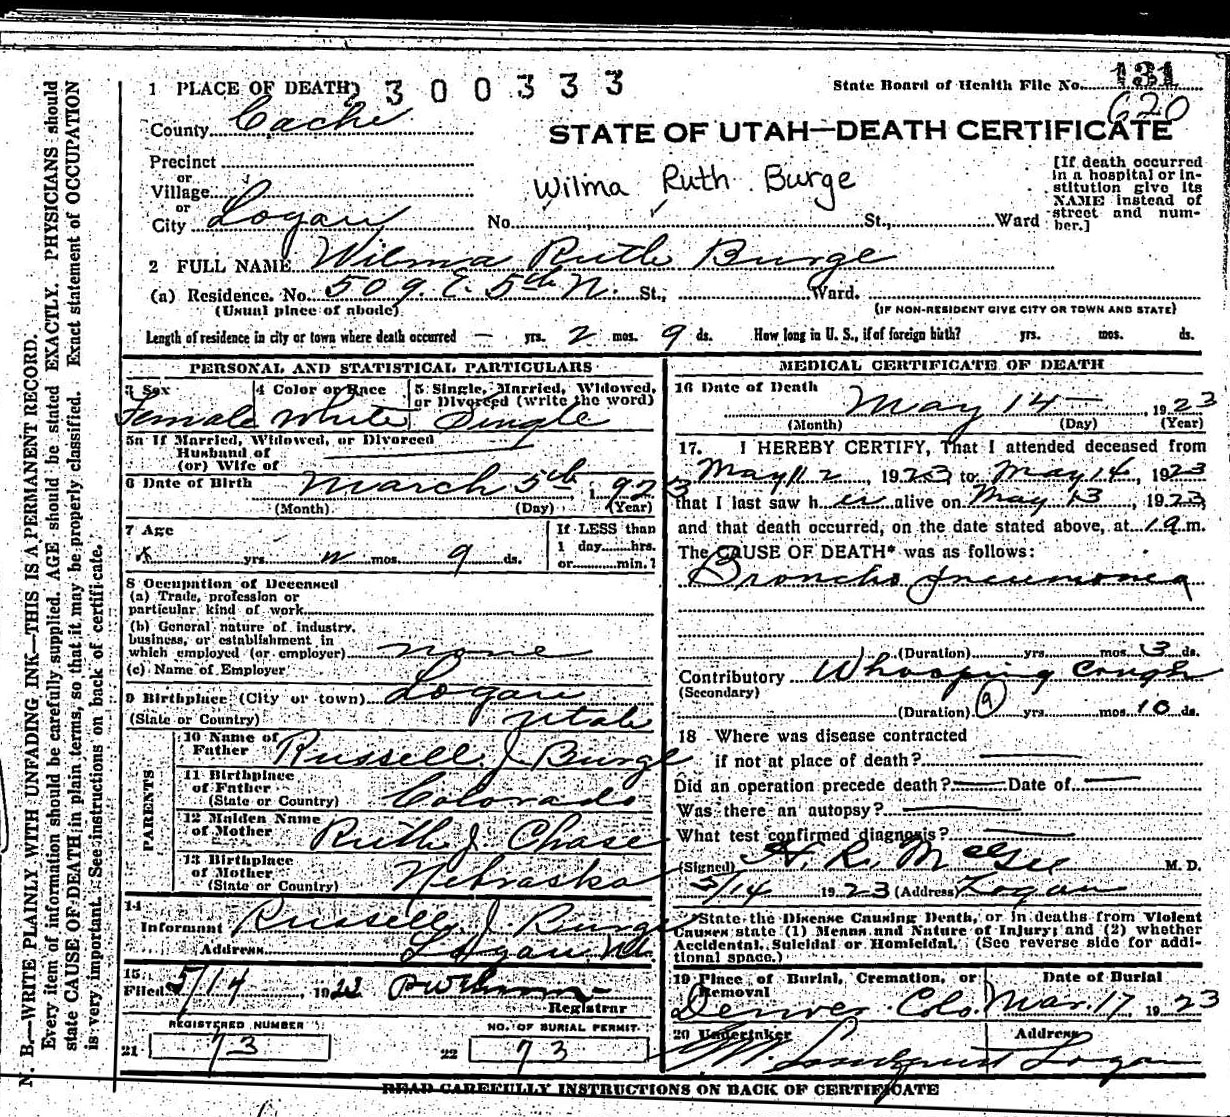 1 PLACE OF DEATH 2300333
State Board of Health File No. 131
620
County Cache
STATE OF UTAH—DEATH CERTIFICATE
Precinct
or
Village
or
City Logan
Wilma Ruth Burge
No. St., Ward
[If death occurred
in a hospital or in-
stitution give its
NAME instead of
street and num-
ber.]
2 FULL NAME Wilma Ruth Burge
(a) Residence. No. 509. E. 5th N. St., Ward.
(Usual place of abode)
(IF NON-RESIDENT GIVE CITY OR TOWN AND STATE)
Length of residence in city or town where death occurred — yrs. 2 mos. 9 ds. How long in U. S., if of foreign birth? yrs. mos. ds.
PERSONAL AND STATISTICAL PARTICULARS
3 Sex
Female
4 Color or Race
White
5 Single, Married, Widowed,
or Divorced (write the word)
Single
5a If Married, Widowed, or Divorced
Husband of
(or) Wife of
6 Date of Birth March 5th, 1923
(Month) (Day) (Year)
7 Age
yrs. mos. 9 ds.
If LESS than
1 day......hrs.
or......min.?
8 Occupation of Deceased
(a) Trade, profession or
particular kind of work
(b) General nature of industry,
business, or establishment in
which employed (or employer) none
(c) Name of Employer
9 Birthplace (City or town) Logan
(State or Country) Utah
PARENTS
10 Name of
Father Russell J Burge
11 Birthplace
of Father
(State or Country) Colorado
12 Maiden Name
of Mother Ruth J Chase
13 Birthplace
of Mother
(State or Country) Nebraska
14
Informant Russell J. Burge
Address Logan Ut.
15
Filed 5/14, 1923
Registrar
REGISTERED NUMBER
21 73
NO. OF BURIAL PERMIT
22 73
MEDICAL CERTIFICATE OF DEATH
16 Date of Death
May 14 — , 1923
(Month) (Day) (Year)
17. I HEREBY CERTIFY, That I attended deceased from
May 12, 1923 to May 14, 1923
that I last saw her alive on May 13, 1923,
and that death occurred, on the date stated above, at 1 a m.
The CAUSE OF DEATH* was as follows:
Broncho pneumonia
(Duration) yrs. mos. 3 ds.
Contributory Whooping Cough
(Secondary)
(Duration) (9) yrs. mos. 10 ds.
18 Where was disease contracted
if not at place of death?
Did an operation precede death? Date of
Was there an autopsy?
What test confirmed diagnosis?
(Signed) H. R. McGee M. D.
5/14 1923 (Address) Logan
*State the Disease Causing Death, or in deaths from Violent
Causes state (1) Means and Nature of Injury; and (2) whether
Accidental, Suicidal or Homicidal. (See reverse side for addi-
tional space.)
19 Place of Burial, Cremation, or
Removal
Denver Colo.
Date of Burial
Mar. 17, 1923
20 Undertaker
Lindquist
Address
Logan
READ CAREFULLY INSTRUCTIONS ON BACK OF CERTIFICATE
N. B.—WRITE PLAINLY WITH UNFADING INK—THIS IS A PERMANENT RECORD.
Every item of information should be carefully supplied. AGE should be stated EXACTLY. PHYSICIANS should
state CAUSE OF DEATH in plain terms, so that it may be properly classified. Exact statement of OCCUPATION
is very important. See instructions on back of certificate.